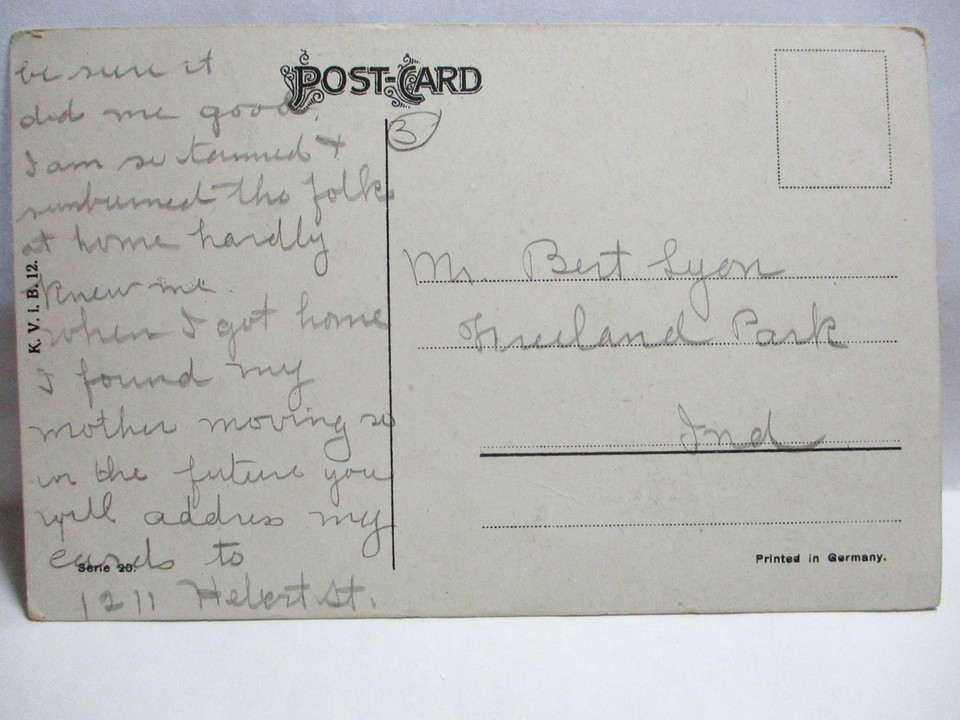 POST-CARD
3
be sure it
did me good.
I am so tanned +
sunburned tho folks
at home hardly
knew me.
when I got home
I found my
mother moving so
in the future you
will address my
cards to
1211 Hebert St.
K. V. i. B. 12.
Serie 20.
Mr. Bert Lyon
Freeland Park
Ind
Printed in Germany.